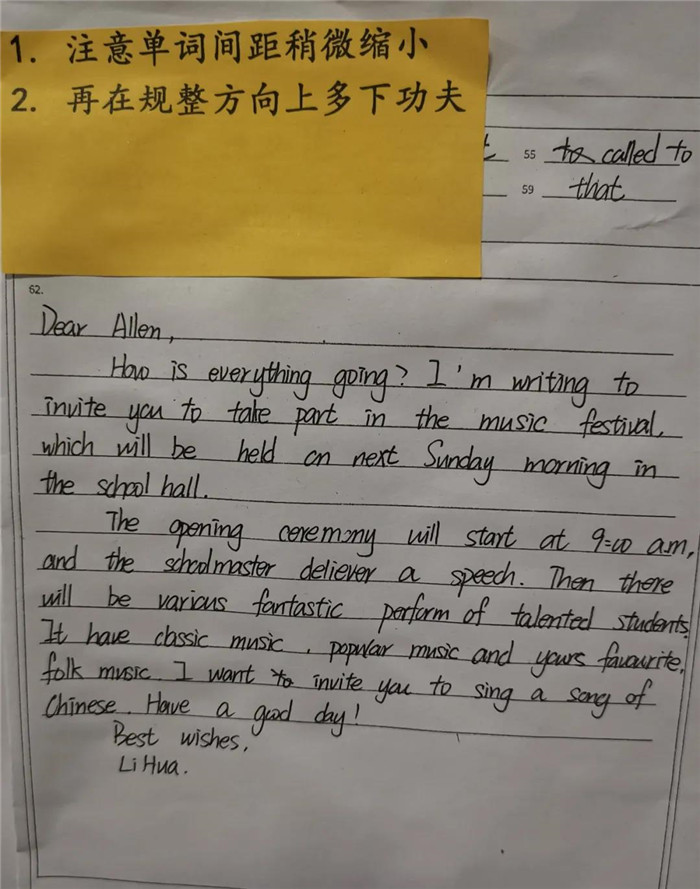 1. 注意单词间距稍微缩小
2. 再在规整方向上多下功夫
55 to called to
59 that
62.
Dear Allen,
How is everything going? I'm writing to
invite you to take part in the music festival,
which will be held on next Sunday morning in
the school hall.
The opening ceremony will start at 9:00 am,
and the schoolmaster deliever a speech. Then there
will be various fantastic perform of talented students.
It have classic music, popular music and yours favourite,
folk music. I want to invite you to sing a song of
Chinese. Have a good day!
Best wishes,
Li Hua.